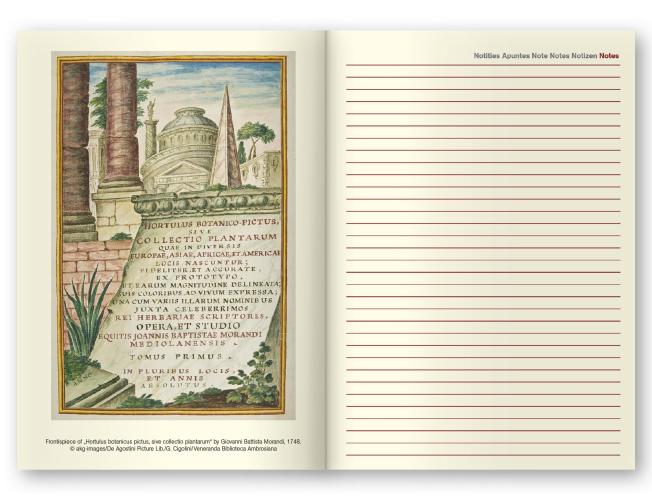 HORTULUS BOTANICO-PICTUS,
SIVE
COLLECTIO PLANTARUM
QUAE IN DIVERSIS
EUROPAE, ASIAE, AFRICAE, ET AMERICAE
LOCIS NASCUNTUR;
FIDELITER, ET ACCURATE,
EX PROTOTYPO,
ET EARUM MAGNITUDINE DELINEATA;
SUIS COLORIBUS AD VIVUM EXPRESSA;
UNA CUM VARIIS ILLARUM NOMINIBUS
JUXTA CELEBERRIMOS
REI HERBARIAE SCRIPTORES,
OPERA, ET STUDIO
EQUITIS JOANNIS BAPTISTAE MORANDI
MEDIOLANENSIS
TOMUS PRIMUS.
IN PLURIBUS LOCIS,
ET ANNIS
ABSOLUTUS.
Frontispiece of „Hortulus botanicus pictus, sive collectio plantarum“ by Giovanni Battista Morandi, 1748.
© akg-images/De Agostini Picture Lib./G. Cigolini/Veneranda Biblioteca Ambrosiana
Notities Apuntes Note Notes Notizen Notes